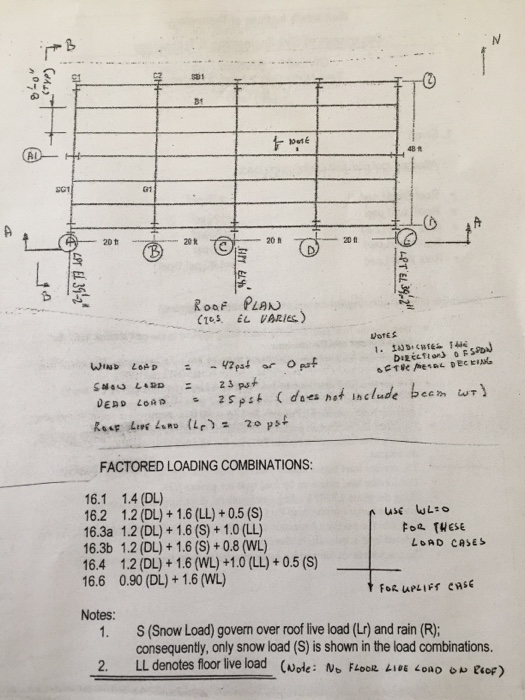 B
N
(TYP)
8'-0"
SB1
2
B1
NOTE
1
A1
48 ft
SG1
G1
1
A
A
A
20 ft
B
20 ft
C
20 ft
D
20 ft
B
LPT EL 39'-2"
HPT EL
LPT EL 39'-2"
ROOF PLAN
(TOS EL VARIES)
NOTES
1. INDICATES THE
DIRECTION OF SPAN
OF THE METAL DECKING
WIND LOAD = -42psf or 0 psf
SNOW LOAD = 23 psf
DEAD LOAD = 25 psf (does not include beam WT)
ROOF LIVE LOAD (Lr) = 20 psf
FACTORED LOADING COMBINATIONS:
16.1 1.4 (DL)
16.2 1.2 (DL) + 1.6 (LL) + 0.5 (S)
16.3a 1.2 (DL) + 1.6 (S) + 1.0 (LL)
16.3b 1.2 (DL) + 1.6 (S) + 0.8 (WL)
16.4 1.2 (DL) + 1.6 (WL) +1.0 (LL) + 0.5 (S)
16.6 0.90 (DL) + 1.6 (WL)
USE WL=0
FOR THESE
LOAD CASES
FOR UPLIFT CASE
Notes:
1. S (Snow Load) govern over roof live load (Lr) and rain (R);
consequently, only snow load (S) is shown in the load combinations.
2. LL denotes floor live load (Note: NO FLOOR LIVE LOAD ON ROOF)